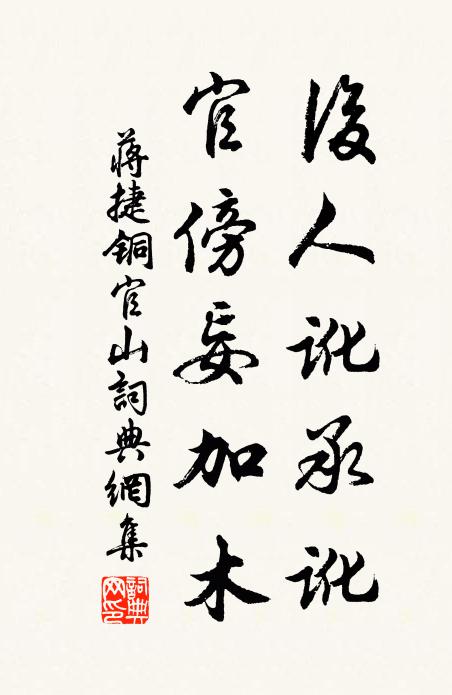 後人訛承訛
官傍妄加木
蔣捷銅官山詞典網集
詞典網印